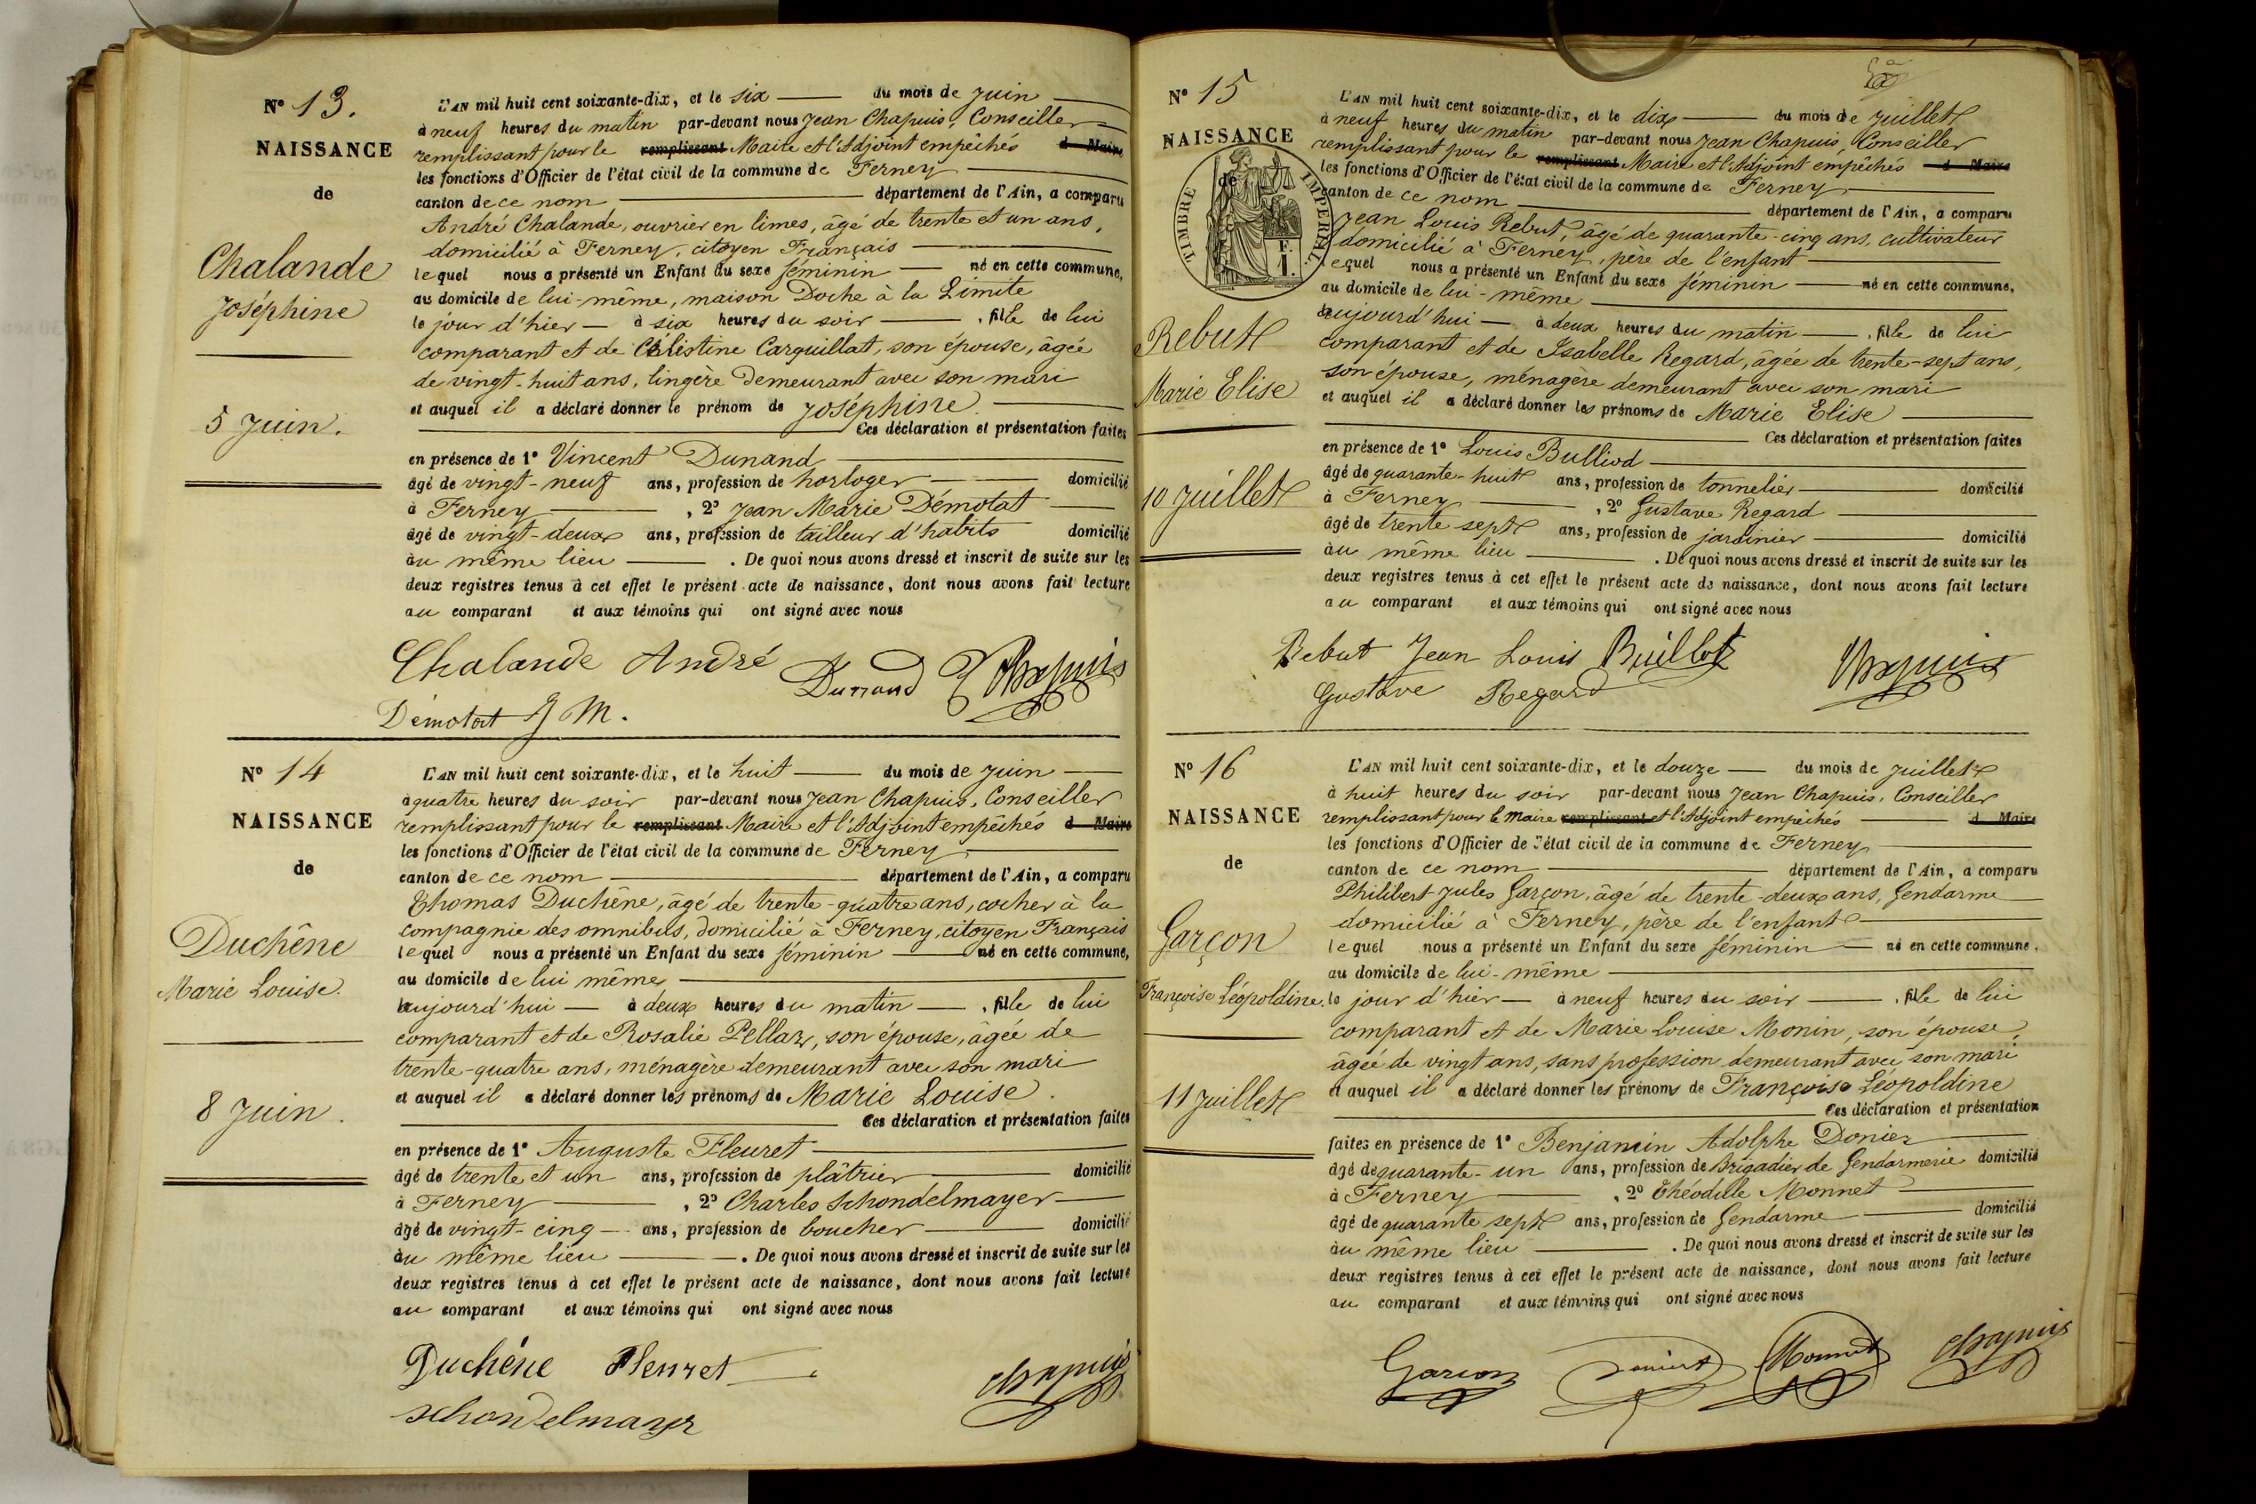 N° 13.
NAISSANCE
de
Chalande
Joséphine
5 Juin.
L'AN mil huit cent soixante-dix, et le six du mois de Juin
à neuf heures du matin par-devant nous Jean Chapuis, Conseiller
remplissant pour le remplissant Maire et l'Adjoint empêchés d Maire
les fonctions d'Officier de l'état civil de la commune de Ferney
canton de ce nom département de l'Ain, a comparu
André Chalande, ouvrier en limes, âgé de trente et un ans,
domicilié à Ferney, citoyen Français
lequel nous a présenté un Enfant du sexe féminin né en cette commune,
au domicile de lui-même, maison Doche à la Limite
le jour d'hier à six heures du soir, fille de lui
comparant et de Célestine Carquillat, son épouse, âgée
de vingt-huit ans, lingère demeurant avec son mari
et auquel il a déclaré donner le prénom de Joséphine
Ces déclaration et présentation faites
en présence de 1° Vincent Dunand
âgé de vingt-neuf ans, profession de horloger domicilié
à Ferney, 2° Jean Marie Démolat
âgé de vingt-deux ans, profession de tailleur d'habits domicilié
au même lieu. De quoi nous avons dressé et inscrit de suite sur les
deux registres tenus à cet effet le présent acte de naissance, dont nous avons fait lecture
au comparant et aux témoins qui ont signé avec nous
Chalande André Dunand Chapuis
Démolat J M.
N° 14
NAISSANCE
de
Duchêne
Marie Louise.
8 Juin.
L'AN mil huit cent soixante-dix, et le huit du mois de Juin
à quatre heures du soir par-devant nous Jean Chapuis, Conseiller
remplissant pour le remplissant Maire et l'Adjoint empêchés d Maire
les fonctions d'Officier de l'état civil de la commune de Ferney
canton de ce nom département de l'Ain, a comparu
Thomas Duchêne, âgé de trente-quatre ans, cocher à la
compagnie des omnibus, domicilié à Ferney, citoyen Français
lequel nous a présenté un Enfant du sexe féminin né en cette commune,
au domicile de lui même
aujourd'hui à deux heures du matin, fille de lui
comparant et de Rosalie Pellaz, son épouse, âgée de
trente-quatre ans, ménagère demeurant avec son mari
et auquel il a déclaré donner les prénoms de Marie Louise.
Ces déclaration et présentation faites
en présence de 1° Auguste Fleuret
âgé de trente et un ans, profession de plâtrier domicilié
à Ferney, 2° Charles Schondelmayer
âgé de vingt-cinq ans, profession de boucher domicilié
au même lieu. De quoi nous avons dressé et inscrit de suite sur les
deux registres tenus à cet effet le présent acte de naissance, dont nous avons fait lecture
au comparant et aux témoins qui ont signé avec nous
Duchéne Fleuret Chapuis
Schondelmayer
N° 15
NAISSANCE
de
TIMBRE IMPERIAL
Rebut
Marie Elise
10 Juillet
L'AN mil huit cent soixante-dix, et le dix du mois de Juillet
à neuf heures du matin par-devant nous Jean Chapuis, Conseiller
remplissant pour le remplissant Maire et l'Adjoint empêchés d Maire
les fonctions d'Officier de l'état civil de la commune de Ferney
canton de ce nom département de l'Ain, a comparu
Jean Louis Rebut, âgé de quarante-cinq ans, cultivateur
domicilié à Ferney, père de l'enfant
lequel nous a présenté un Enfant du sexe féminin né en cette commune,
au domicile de lui-même
aujourd'hui à deux heures du matin, fille de lui
comparant et de Isabelle Regard, âgée de trente-sept ans,
son épouse, ménagère demeurant avec son mari
et auquel il a déclaré donner les prénoms de Marie Elise
Ces déclaration et présentation faites
en présence de 1° Louis Bulliod
âgé de quarante-huit ans, profession de tonnelier domicilié
à Ferney, 2° Gustave Regard
âgé de trente sept ans, profession de jardinier domicilié
au même lieu. De quoi nous avons dressé et inscrit de suite sur les
deux registres tenus à cet effet le présent acte de naissance, dont nous avons fait lecture
au comparant et aux témoins qui ont signé avec nous
Rebut Jean Louis Chapuis
Gustave Regard
N° 16
NAISSANCE
de
Garçon
Françoise Léopoldine.
11 Juillet
L'AN mil huit cent soixante-dix, et le douze du mois de Juillet
à huit heures du soir par-devant nous Jean Chapuis, Conseiller
remplissant pour le Maire remplissant et l'Adjoint empêchés d Maire
les fonctions d'Officier de l'état civil de la commune de Ferney
canton de ce nom département de l'Ain, a comparu
Philibert Jules Garçon, âgé de trente-deux ans, Gendarme
domicilié à Ferney, père de l'enfant
lequel nous a présenté un Enfant du sexe féminin né en cette commune,
au domicile de lui-même
le jour d'hier à neuf heures du soir, fille de lui
comparant et de Marie Louise Monin, son épouse,
âgée de vingt ans, sans profession demeurant avec son mari
et auquel il a déclaré donner les prénoms de Françoise Léopoldine
Ces déclaration et présentation
faites en présence de 1° Benjamin Adolphe Donier
âgé de quarante-un ans, profession de Brigadier de Gendarmerie domicilié
à Ferney, 2° Théodule Monnet
âgé de quarante sept ans, profession de Gendarme domicilié
au même lieu. De quoi nous avons dressé et inscrit de suite sur les
deux registres tenus à cet effet le présent acte de naissance, dont nous avons fait lecture
au comparant et aux témoins qui ont signé avec nous
Garçon Monnet Chapuis